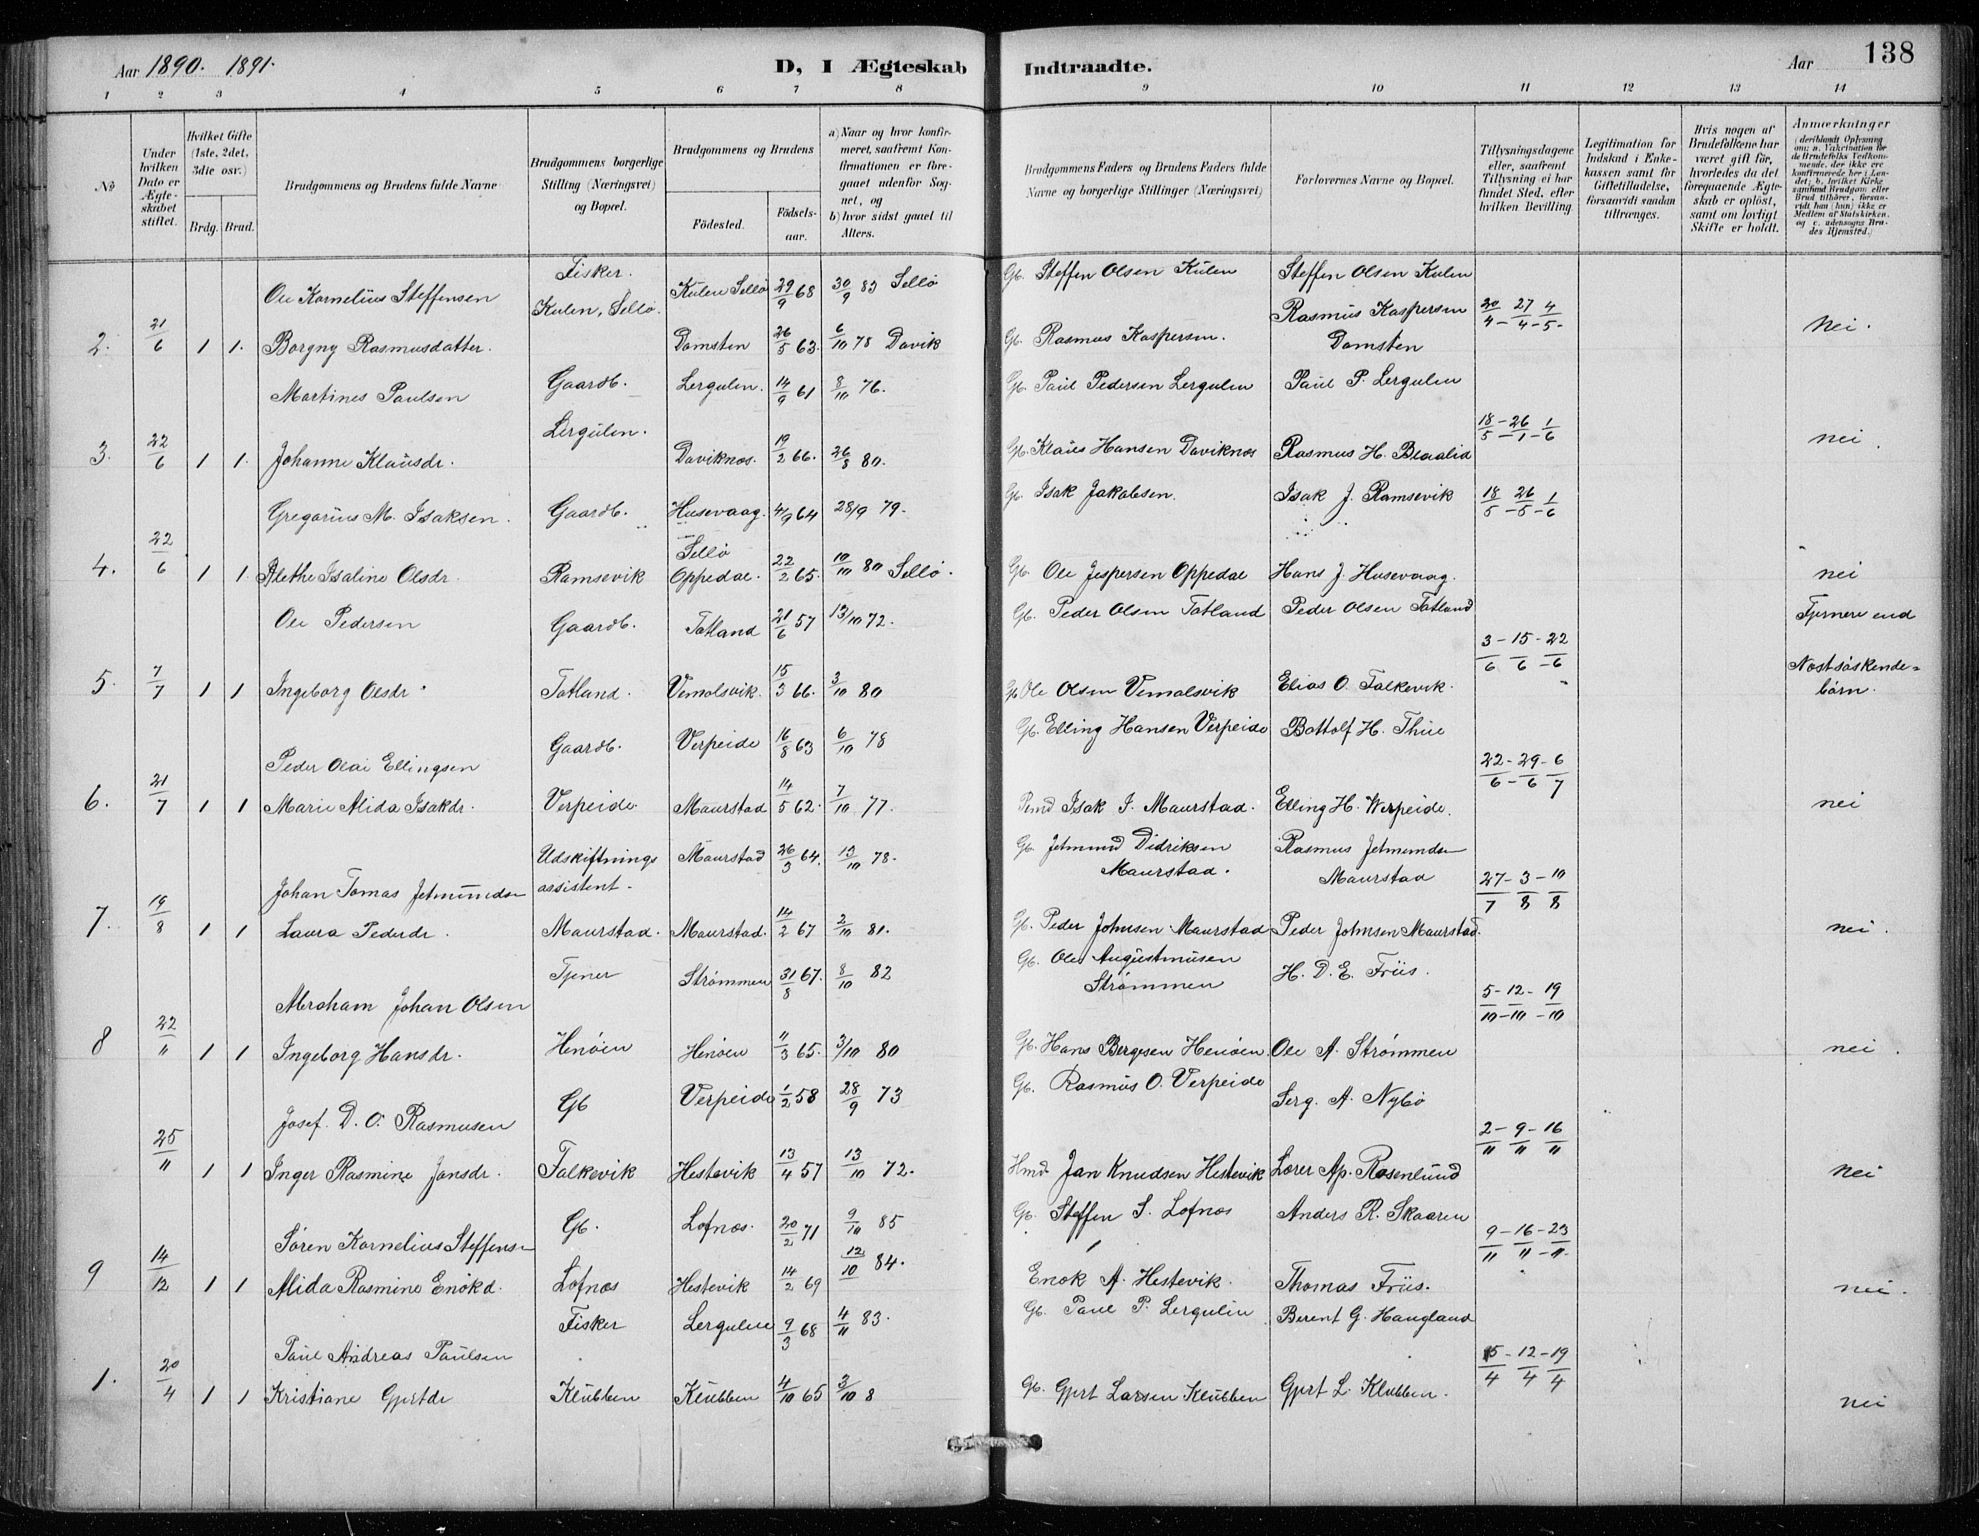 Aar 1890. 1891.
D, I Ægteskab Indtraadte.
Aar 138
1 2 3 4 5 6 7 8 9 10 11 12 13 14
No
Under hvilken Dato er Ægteskabet stiftet.
Hvilket Gifte (1ste, 2det, 3die osv.)
Brdg. Brud.
Brudgommens og Brudens fulde Navne
Brudgommens borgerlige Stilling (Næringsvei) og Bopæl.
Brudgommens og Brudens
Födested. Födsels-aar.
a) Naar og hvor konfirmeret, saafremt Konfirmationen er foregaaet udenfor Sognet, og
b) hvor sidst gaael til Alters.
Brudgommens Faders og Brudens Faders fulde Navne og borgerlige Stillinger (Næringsvei)
Forlovernes Navne og Bopæl.
Tillysningsdagene eller, saafremt Tillysning ei har fundet Sted, efter hvilken Bevilling
Legitimation for Indskud i Enkekassen samt for Giftetilladelse, forsaavidt saadan tiltrænges.
Hvis nogen af Brudefolkene har været gift för, hvorledes da det foregaaende Ægteskab er oplöst, samt om lovligt Skifte er holdt.
Anmærkninger (deriblandt Oplysning om: a. Vaksination for de Brudefolks Vedkommende, der ikke ere konfirmerede her i Landet; b. hvilket Kirkesamfund Brudgom eller Brud tilhörer, forsavidt han (hun) ikke er Medlem af Statskirken, og c. udensogns Brudes Hjemsted.)
Ole Kornelius Steffensen Fisker. Kulen Sellö 29/9 68 30/9 83 Sellö Gb. Steffen Olsen Kulen Steffen Olsen Kulen
Kulen, Sellö. Rasmus Kaspersen 20/4 - 27/4 - 4/5
2. 21/6 1 1. Borgny Rasmusdatter. Domsten 26/5 63. 6/10 78 Davik Gb. Rasmus Kaspersen. Domsten Nei.
Martines Paulsen Gaardb. Lergulen. 14/9 61 8/10 76. Gb. Paul Pedersen Lergulen Paul P. Lergulen
Lergulen. 18/5 - 26/1 - 1/6
3. 22/6 1 1. Johanne Klausdr. Daviknæs. 19/2 66. 26/8 80. Gb. Klaus Hansen Daviknæs Rasmus H. Blaalid nei.
Gregorius M. Isaksen. Gaardb. Husevaag. 4/9 64 28/9 79. Gb. Isak Jakobsen. Isak J. Ramsevik 18/5 - 26/5 - 1/6
Sellö
4. 22/6 1 1. Alethe Isaline Olsdr. Ramsevik Oppedal. 22/2 65. 10/10 80 Sellö. Gb. Ole Jespersen Oppedal Hans J. Husevaag. nei
Ole Pedersen Gaardb. Totland 21/6 57 13/10 72. Gb. Peder Olsen Totland Peder Olsen Totland Fjernere end
3/6 - 15/6 - 22/6 Næstsöskende-
5. 7/7 1 1 Ingeborg Olsdr. Totland. Vemolsvik. 15/3 66. 3/10 80 Gb Ole Olsen Vemolsvik Elias O. Falkevik. börn.
Peder Olai Ellingsen Gaardb. Verpeide 16/8 63 6/10 78 Gb. Elling Hansen Verpeide Bottolf H. Thue
22/6 - 29/6 - 6/7
6. 21/7 1 1 Marie Alida Isakdr. Verpeide. Maurstad 14/5 62. 7/10 77. Isak I. Maurstad. Elling H. Werpeide. nei
Udskiftnings Maurstad 26/3 64. 13/10 78. Gb. Jetmund Didriksen Rasmus Jetmunds
Johan Tomas Jetmunds assistent. Maurstad. Maurstad 27/7 - 3/8 - 10/8
7. 19/8 1 1 Laura Pedersdr. Maurstad. Maurstad. 14/2 67 2/10 81. Gb. Peder Johnsen Maurstad Peder Johnsen Maurstad. nei.
Abraham Johan Olsen Tjener Strømmen 31/8 67. 8/10 82 Gb. Ole Augustinusen H. D. E. Friis.
Strømmen 5/10 - 12/10 - 19/10
8 22/11 1 1 Ingeborg Hansdr. Henöen Henöen 11/3 65. 3/10 80 Gb. Hans Bergesen Henöen. Ole A. Strømmen nei.
Josef. D. O. Rasmusen Gb Verpeide 1/2 58 28/9 73 Gb. Rasmus O. Verpeide Serg. A. Nybö
2/11 - 9/11 - 16/11
25/11 1 1 Inger Rasmine Jansdr. Falkevik Hestevik 13/4 57 13/10 72. Hmd. Jan Knudsen Hestevik Lærer Ap. Rosenlund nei
Sören Kornelius Steffens Gb. Lofnæs. 20/2 71 9/10 85 Gb. Steffen S. Lofnæs Anders R. Skaaren
9/11 - 16/11 - 23/11
9 14/12 1 1 Alida Rasmine Enokd. Lofnæs Hestevik 14/2 69 12/10 84. Enok A. Hestevik. Thomas Friis. nei.
Paul Andreas Paulsen Fisker Lergulen 9/3 68 4/11 83. Gb. Paul P. Lergulen Berent G. Haugland
5/4 - 12/4 - 19/4
1. 20/4 1 1 Kristiane Gjertdr Klubben Klubben 4/10 65 3/10 8 Gb. Gjert Larsen Klubben Gjert L. Klubben. nei